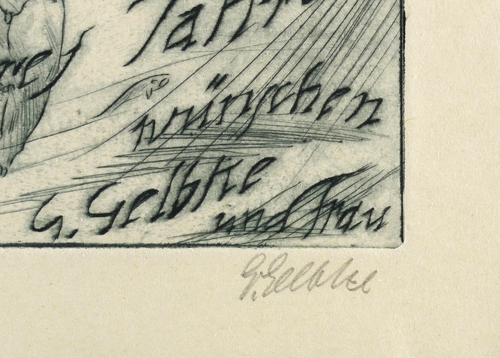 Jahr
wünschen
G. Gelbke
und Frau
G. Gelbke